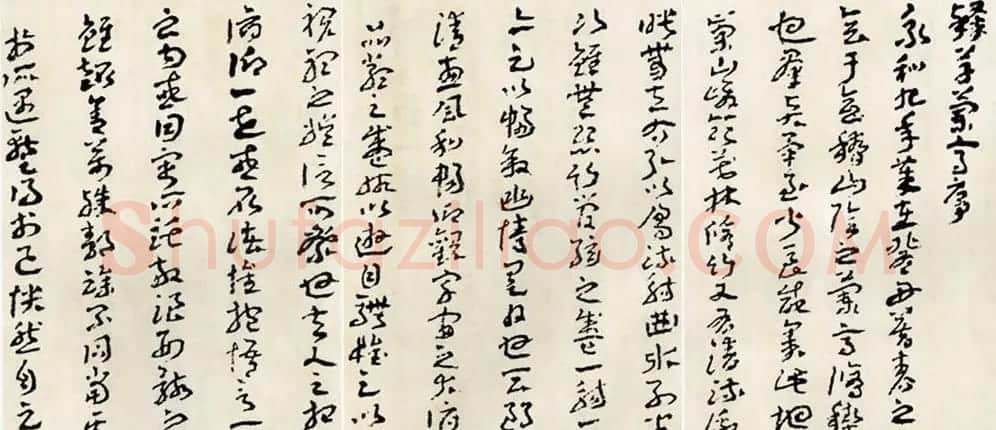 草蘭亭序
永和九年歲在癸丑暮春之
會于會稽山陰之蘭亭脩禊
也羣賢畢至少長咸集此地
崇山峻領茂林脩竹又有清流激
映帶左右引以為流觴曲水列坐
次雖無絲竹管弦之盛一觴一
亦足以暢敘幽情是日也天朗
清惠風和暢仰觀宇宙之大俯
品類之盛所以遊目騁懷足以
視聽之娛信可樂也夫人之相
俯仰一世或取諸懷抱悟言一
之內或因寄所託放浪形骸之
雖趣舍萬殊靜躁不同當其
於所遇暫得於己快然自足
Shufaziliao.COM